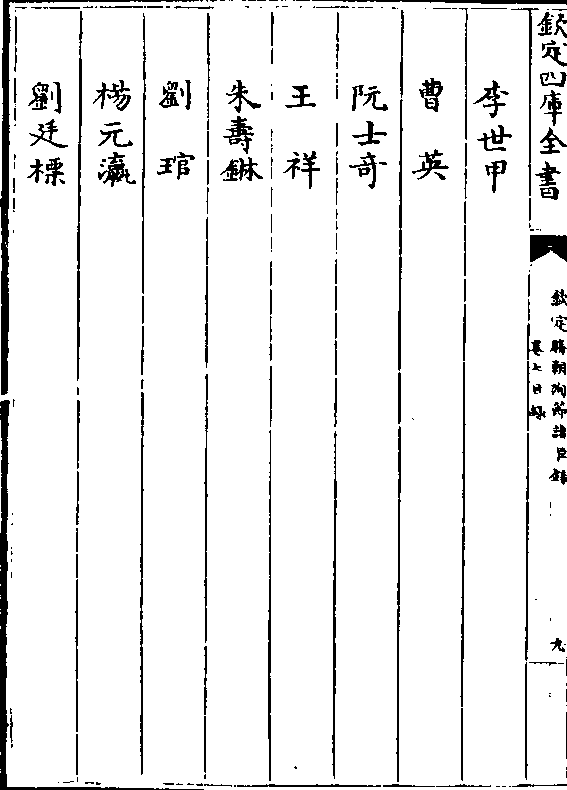 欽定四庫全書
欽定勝朝殉節諸臣錄
卷七目錄
九
李世甲
曹英
阮士奇
王祥
朱壽𨧨
劉琯
楊元瀛
劉廷標